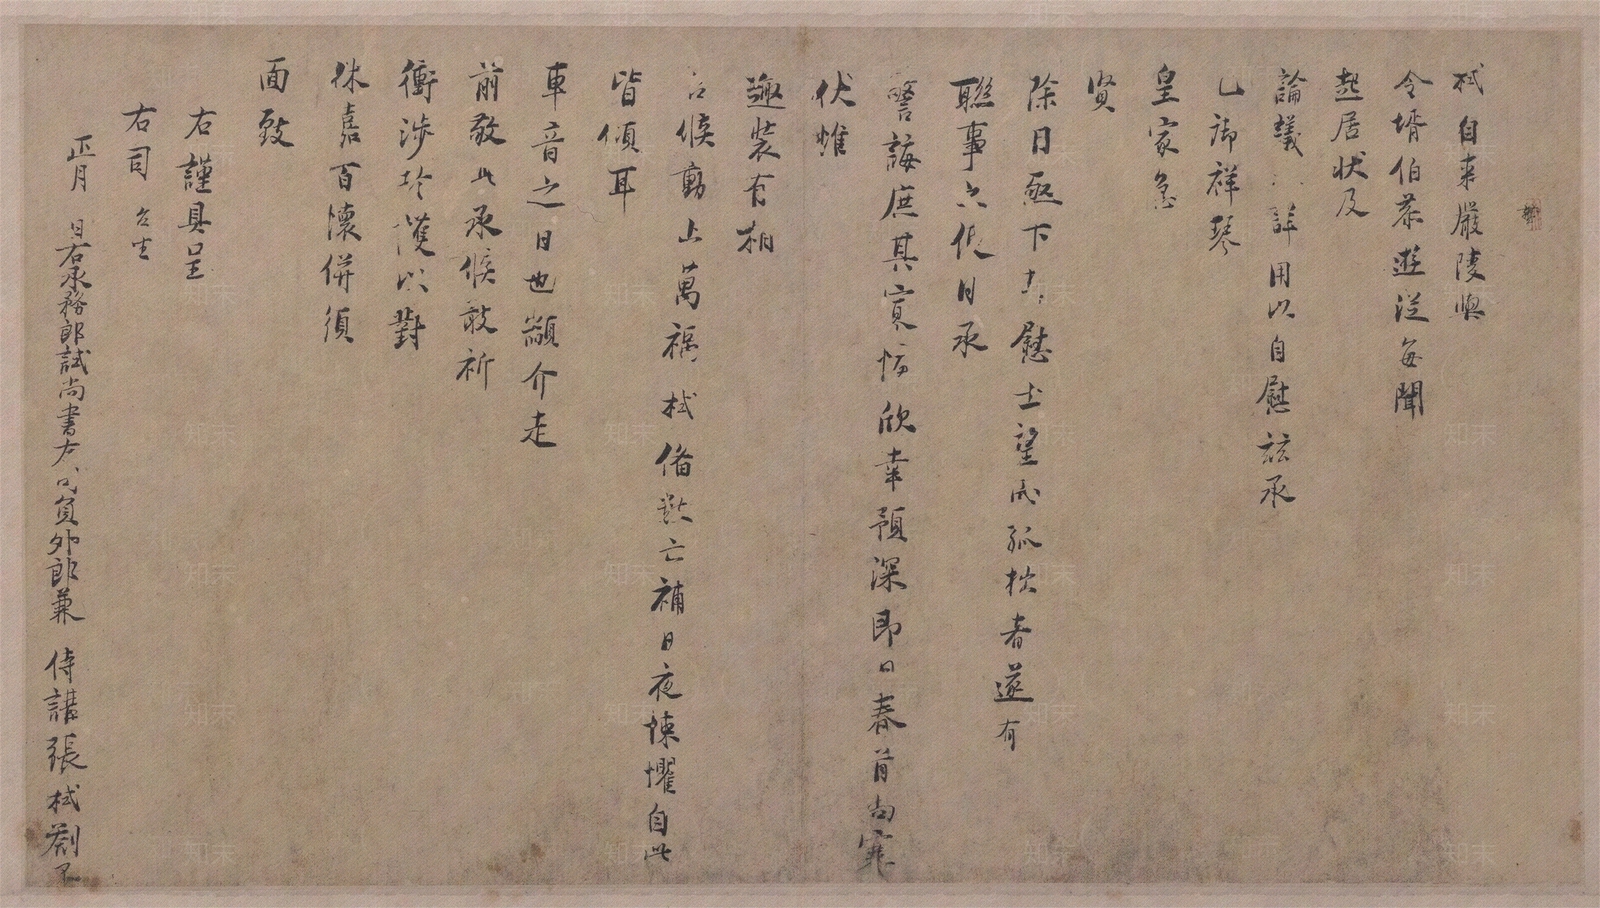 栻自来嚴陵與
令壻伯恭遊從每聞
起居状及
論議之詳用以自慰兹承
已御祥琴
皇家急
賢
除目亟下大慰士望而孤拙者遂有
聯事六
日承
警誨庶其寡
欣幸預深即日春首尚寒
伏惟
趣装有相
台候動止萬福栻備數亡補日夜悚懼自此
皆傾耳
車音之日也顓介走
前敬此承候敢祈
衝涉珍護以對
休嘉百懷併須
面致
右謹具呈
右司
正月 日右承務郎試尚書左司員外郎兼 侍講張栻劄子
知末